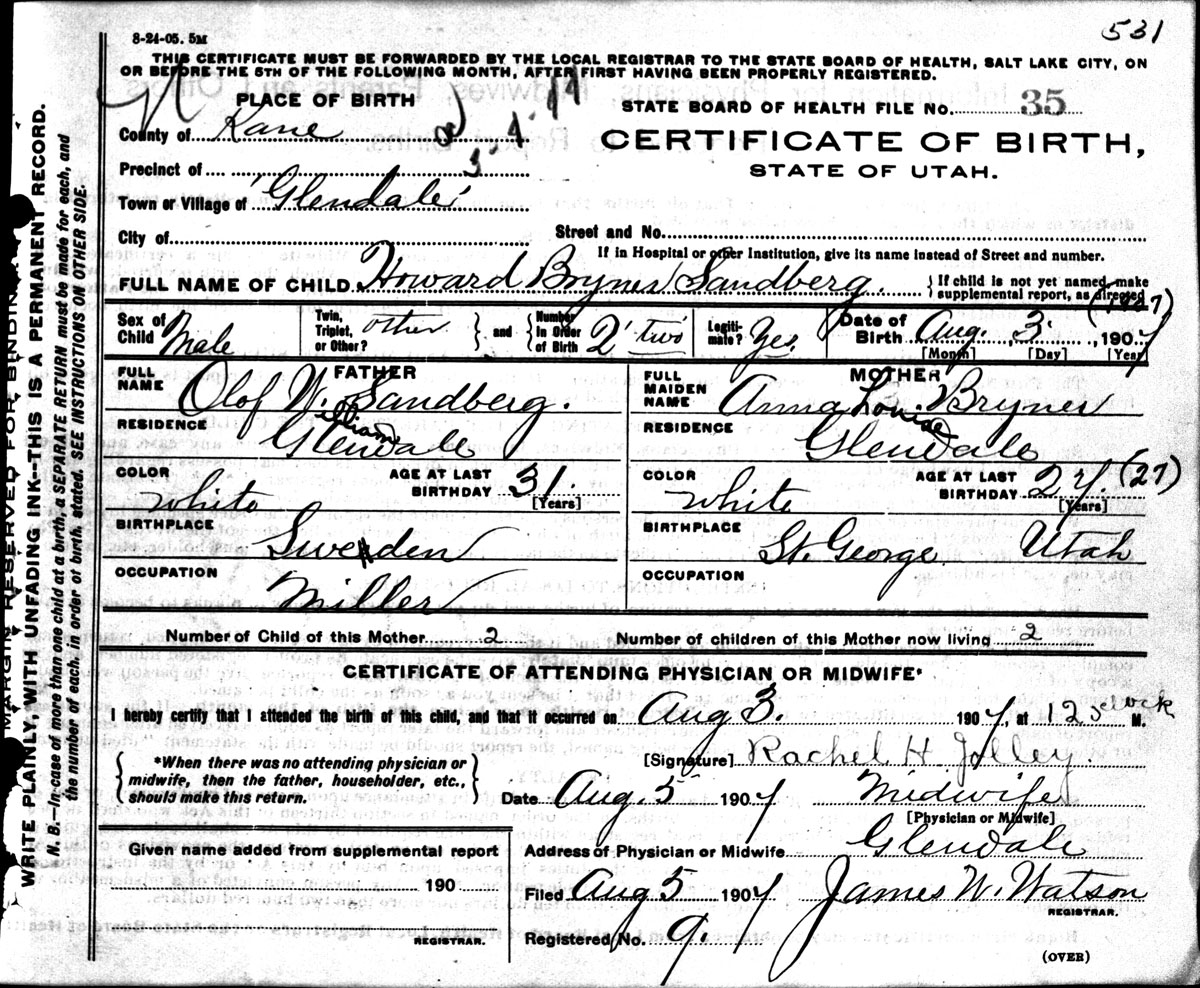 531
8-24-05. 5M
THIS CERTIFICATE MUST BE FORWARDED BY THE LOCAL REGISTRAR TO THE STATE BOARD OF HEALTH, SALT LAKE CITY, ON
OR BEFORE THE 5TH OF THE FOLLOWING MONTH, AFTER FIRST HAVING BEEN PROPERLY REGISTERED.
PLACE OF BIRTH
STATE BOARD OF HEALTH FILE No. 35
County of Kane
CERTIFICATE OF BIRTH,
STATE OF UTAH.
Precinct of
Town or Village of Glendale
City of
Street and No.
If in Hospital or other Institution, give its name instead of Street and number.
FULL NAME OF CHILD Howard Bryner Sandberg. } If child is not yet named, make
supplemental report, as directed
(1907)
Sex of Child Male
Twin, Triplet, or Other? other } and { Number In Order of Birth 2 two
Legitimate? Yes.
Date of Birth Aug. 3, 1907
[Month] [Day] [Year]
FATHER
MOTHER
FULL NAME Olof W. Sandberg.
William
FULL MAIDEN NAME Anna Louise Bryner
RESIDENCE Glendale
RESIDENCE Glendale
COLOR White
AGE AT LAST BIRTHDAY 31. [Years]
COLOR White
AGE AT LAST BIRTHDAY 27. (27)
[Years]
BIRTHPLACE Sweden
BIRTHPLACE St. George Utah
OCCUPATION Miller
OCCUPATION
Number of Child of this Mother 2
Number of children of this Mother now living 2
CERTIFICATE OF ATTENDING PHYSICIAN OR MIDWIFE*
I hereby certify that I attended the birth of this child, and that it occurred on Aug 3. 1907, at 12 oclock M.
{ *When there was no attending physician or midwife, then the father, householder, etc., should make this return. }
[Signature] Rachel H Jolley.
Date Aug. 5 1907
Midwife
[Physician or Midwife]
Given name added from supplemental report
190
REGISTRAR.
Address of Physician or Midwife Glendale
Filed Aug 5 1907 James W. Watson
REGISTRAR.
Registered No. 9.
(OVER)
MARGIN RESERVED FOR BINDING
WRITE PLAINLY, WITH UNFADING INK--THIS IS A PERMANENT RECORD.
N. B.—In case of more than one child at a birth, a SEPARATE RETURN must be made for each, and
the number of each, in order of birth, stated. SEE INSTRUCTIONS ON OTHER SIDE.